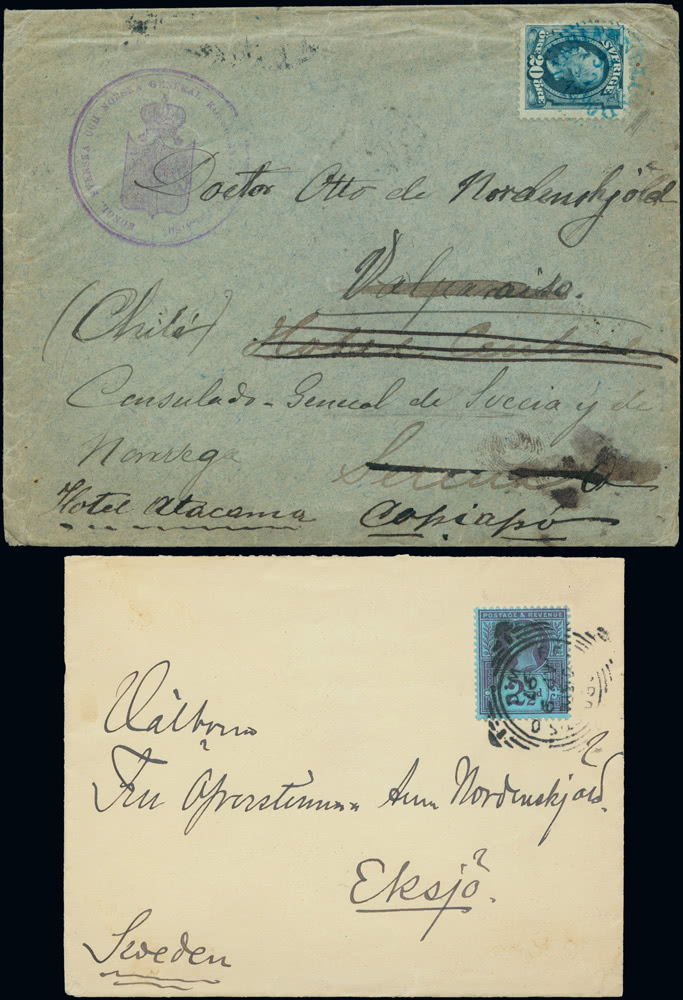 SVERIGE
20
ÖRE
KONGL. SVENSKA OCH NORSKA GENERAL
Doctor Otto de Nordenskjöld
Valparaiso.
(Chile)
Hotel Central
Consulado-General de Suecia y de
Noruega
Serena
Hotel Atacama Copiapó
POSTAGE & REVENUE
2½d
Välborna
Fru Öfverstinnan Anna Nordenskjöld.
Eksjö.
Sweden